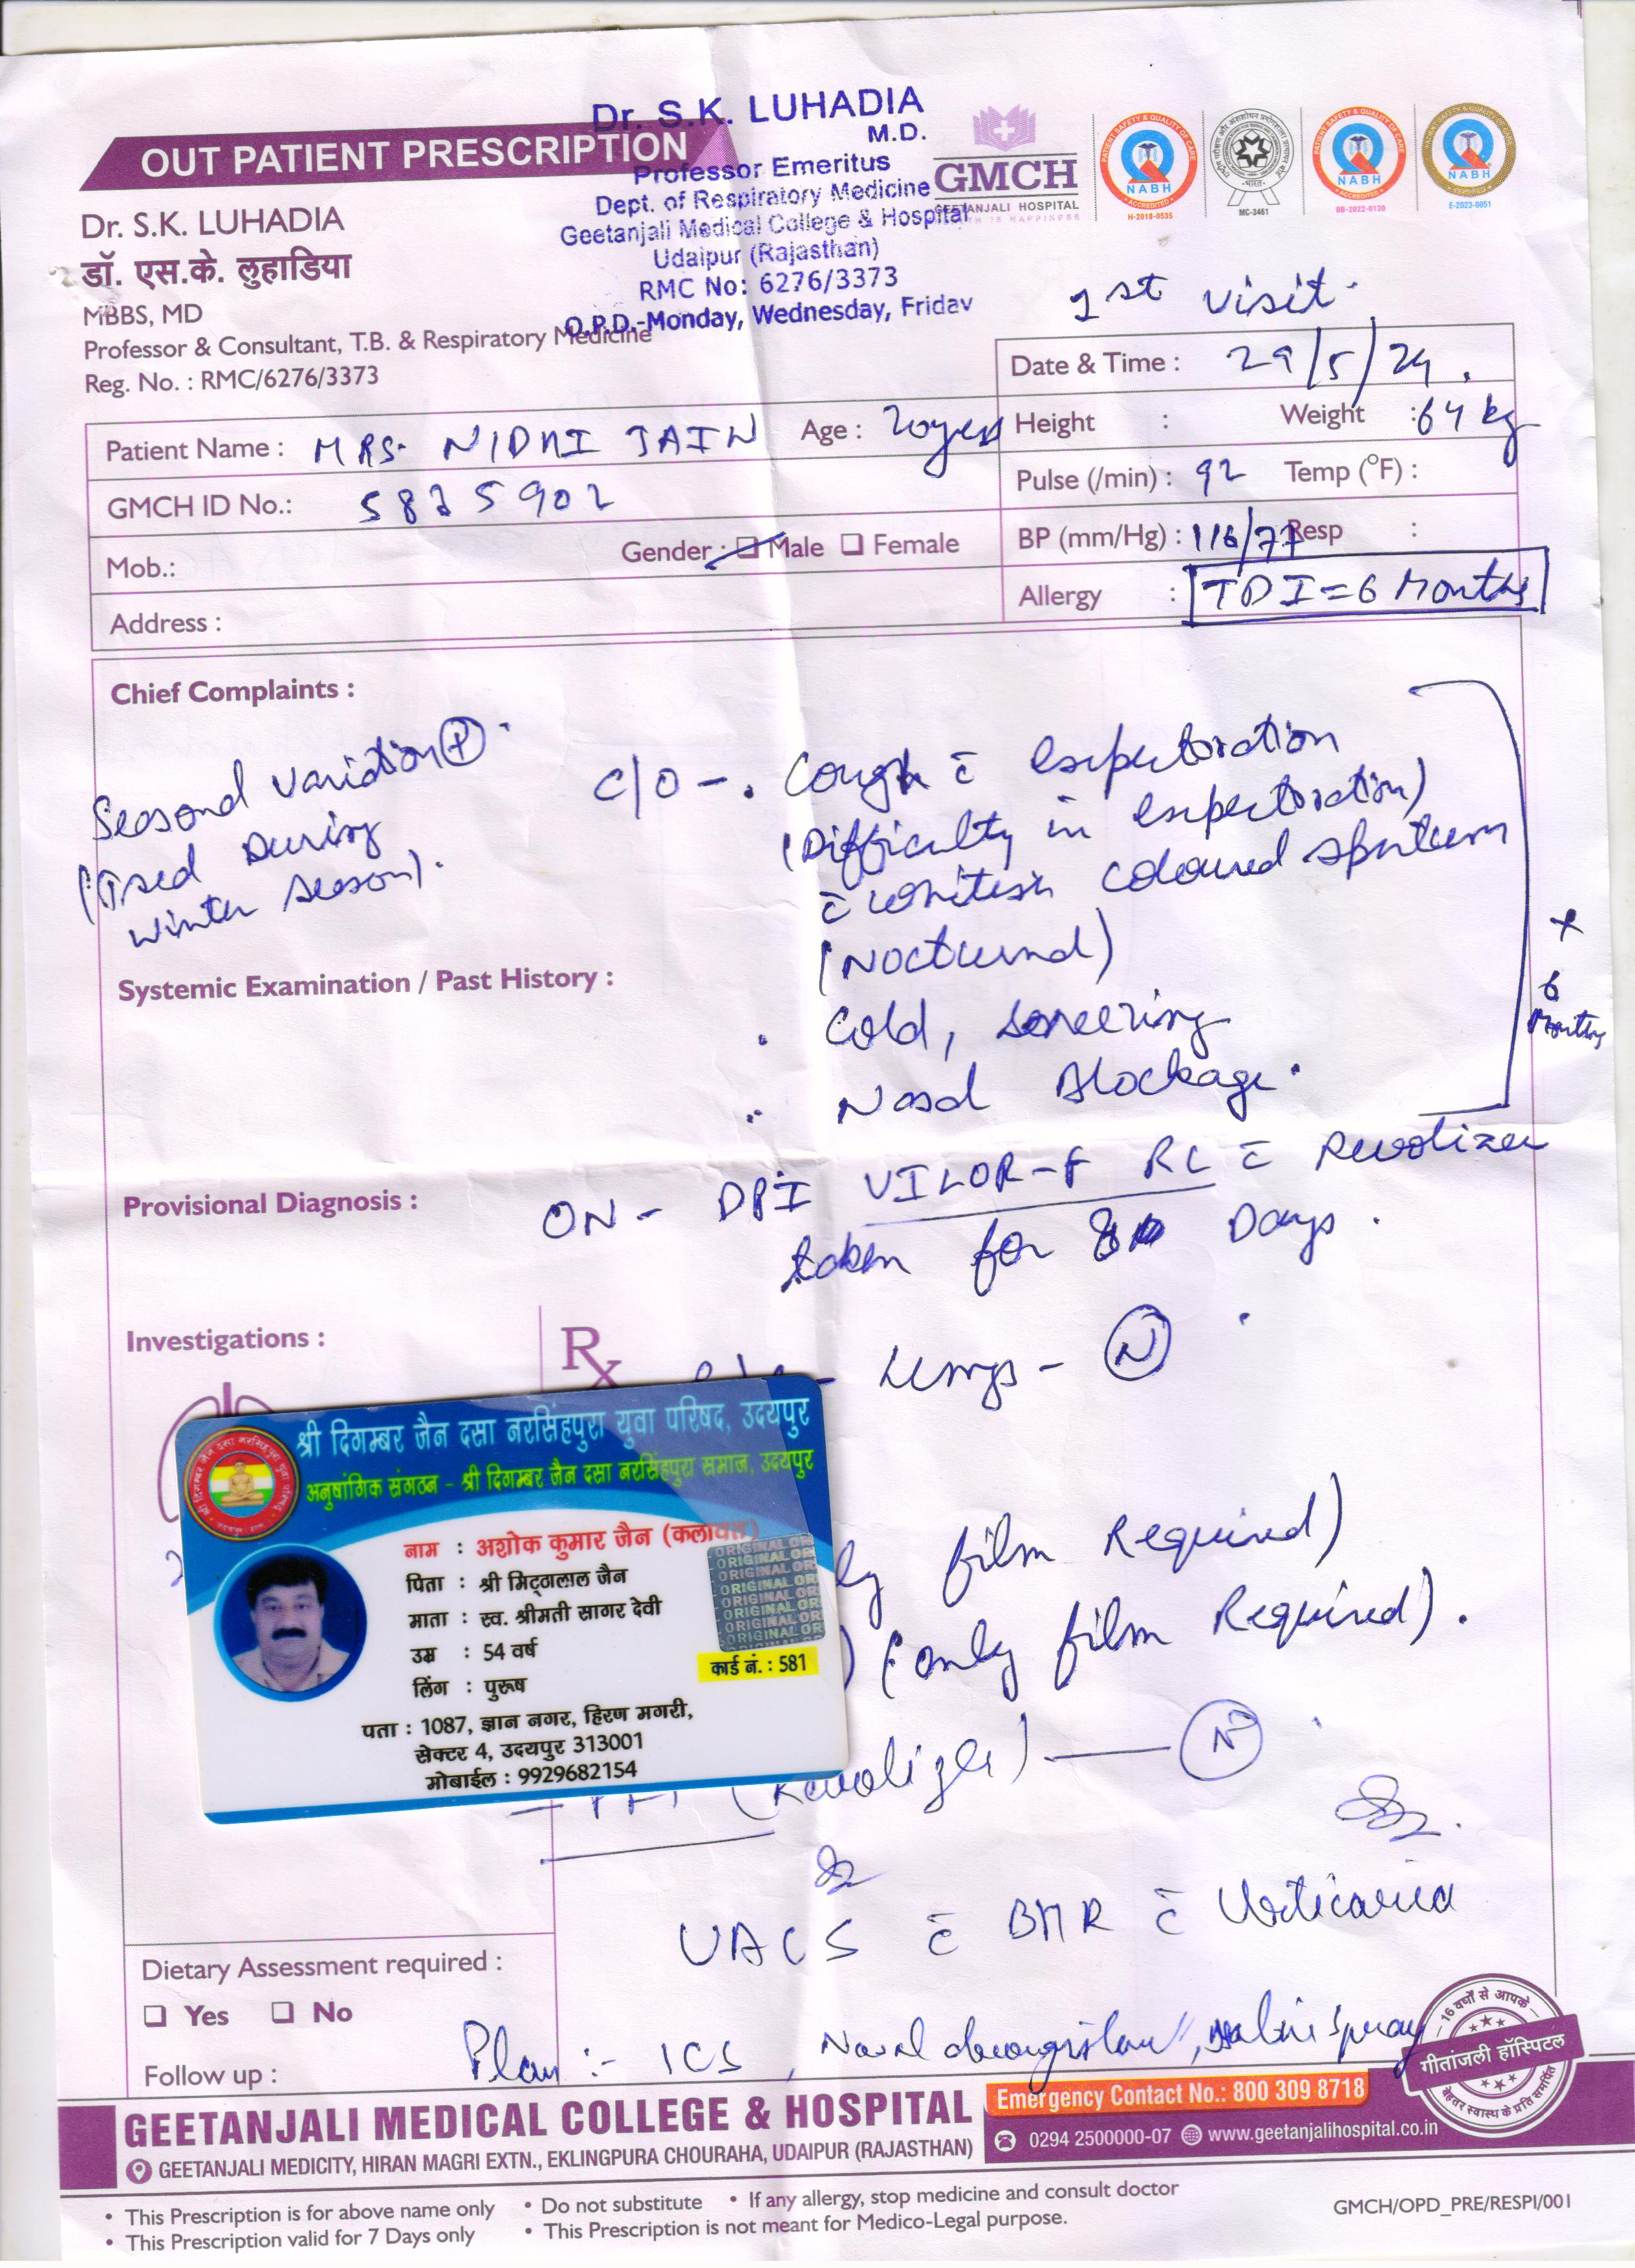 Dr. S.K. LUHADIA
M.D.
OUT PATIENT PRESCRIPTION
Professor Emeritus
Dept. of Respiratory Medicine
Geetanjali Medical College & Hospital
Udaipur (Rajasthan)
RMC No: 6276/3373
O.P.D.-Monday, Wednesday, Friday
GMCH
GEETANJALI HOSPITAL
NABH
H-2018-0535
MC-3461
NABH
BB-2022-0130
NABH
E-2023-0051
Dr. S.K. LUHADIA
डॉ. एस.के. लुहाडिया
MBBS, MD
Professor & Consultant, T.B. & Respiratory Medicine
Reg. No. : RMC/6276/3373
1st visit.
Date & Time : 29/5/24.
Patient Name : MRS. NIDHI JAIN Age :
Height : Weight : 64 kg
GMCH ID No.: 5825902
Pulse (/min) : 92 Temp (°F) :
Mob.: Gender : Male Female
BP (mm/Hg) : 116/77 Resp :
Address :
Allergy : TDI = 6 Months
Chief Complaints :
Seasonal variation +
During
winter season).
C/O - . Cough c̄ expectoration
(Difficulty in expectoration)
c̄ whitish coloured sputum
(Nocturnal)
x 6 Months
Systemic Examination / Past History :
. Cold, sneezing
Nasal Blockage.
Provisional Diagnosis :
ON - DPI VILOR-F RC c̄ Revolizer
taken for Days.
Investigations :
Rx
Lungs - N
film Required)
(only film Required).
(Revolizer) — N
श्री दिगम्बर जैन दसा नरसिंहपुरा युवा परिषद, उदयपुर
अनुषांगिक संगठन - श्री दिगम्बर जैन दसा नरसिंहपुरा समाज, उदयपुर
नाम : अशोक कुमार जैन (कलावत)
पिता : श्री मिट्ठालाल जैन
माता : स्व. श्रीमती सागर देवी
उम्र : 54 वर्ष
लिंग : पुरूष
कार्ड नं. : 581
पता : 1087, ज्ञान नगर, हिरण मगरी,
सेक्टर 4, उदयपुर 313001
मोबाईल : 9929682154
UACS c̄ BHR c̄ Urticaria
Dietary Assessment required :
Yes No
Plan :- ICS, Nasal decongestant, saline spray
Follow up :
16 वर्षों से आपके
गीतांजली हॉस्पिटल
बेहतर स्वास्थ के प्रति समर्पित
GEETANJALI MEDICAL COLLEGE & HOSPITAL
GEETANJALI MEDICITY, HIRAN MAGRI EXTN., EKLINGPURA CHOURAHA, UDAIPUR (RAJASTHAN)
Emergency Contact No.: 800 309 8718
0294 2500000-07 www.geetanjalihospital.co.in
• This Prescription is for above name only • Do not substitute • If any allergy, stop medicine and consult doctor
• This Prescription valid for 7 Days only • This Prescription is not meant for Medico-Legal purpose.
GMCH/OPD_PRE/RESPI/001